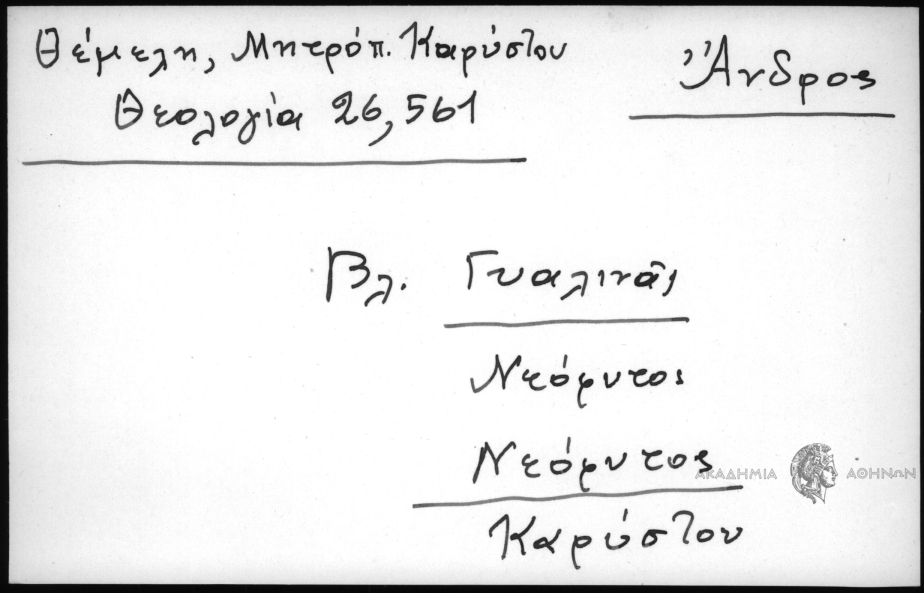 Θέμελη, Μητρόπ. Καρύστου
Θεολογία 26, 561
Ἄνδρος
Βλ. Γυαλινᾶς
Νεόφυτος
Νεόφυτος
Καρύστου
ΑΚΑΔΗΜΙΑ ΑΘΗΝΩΝ